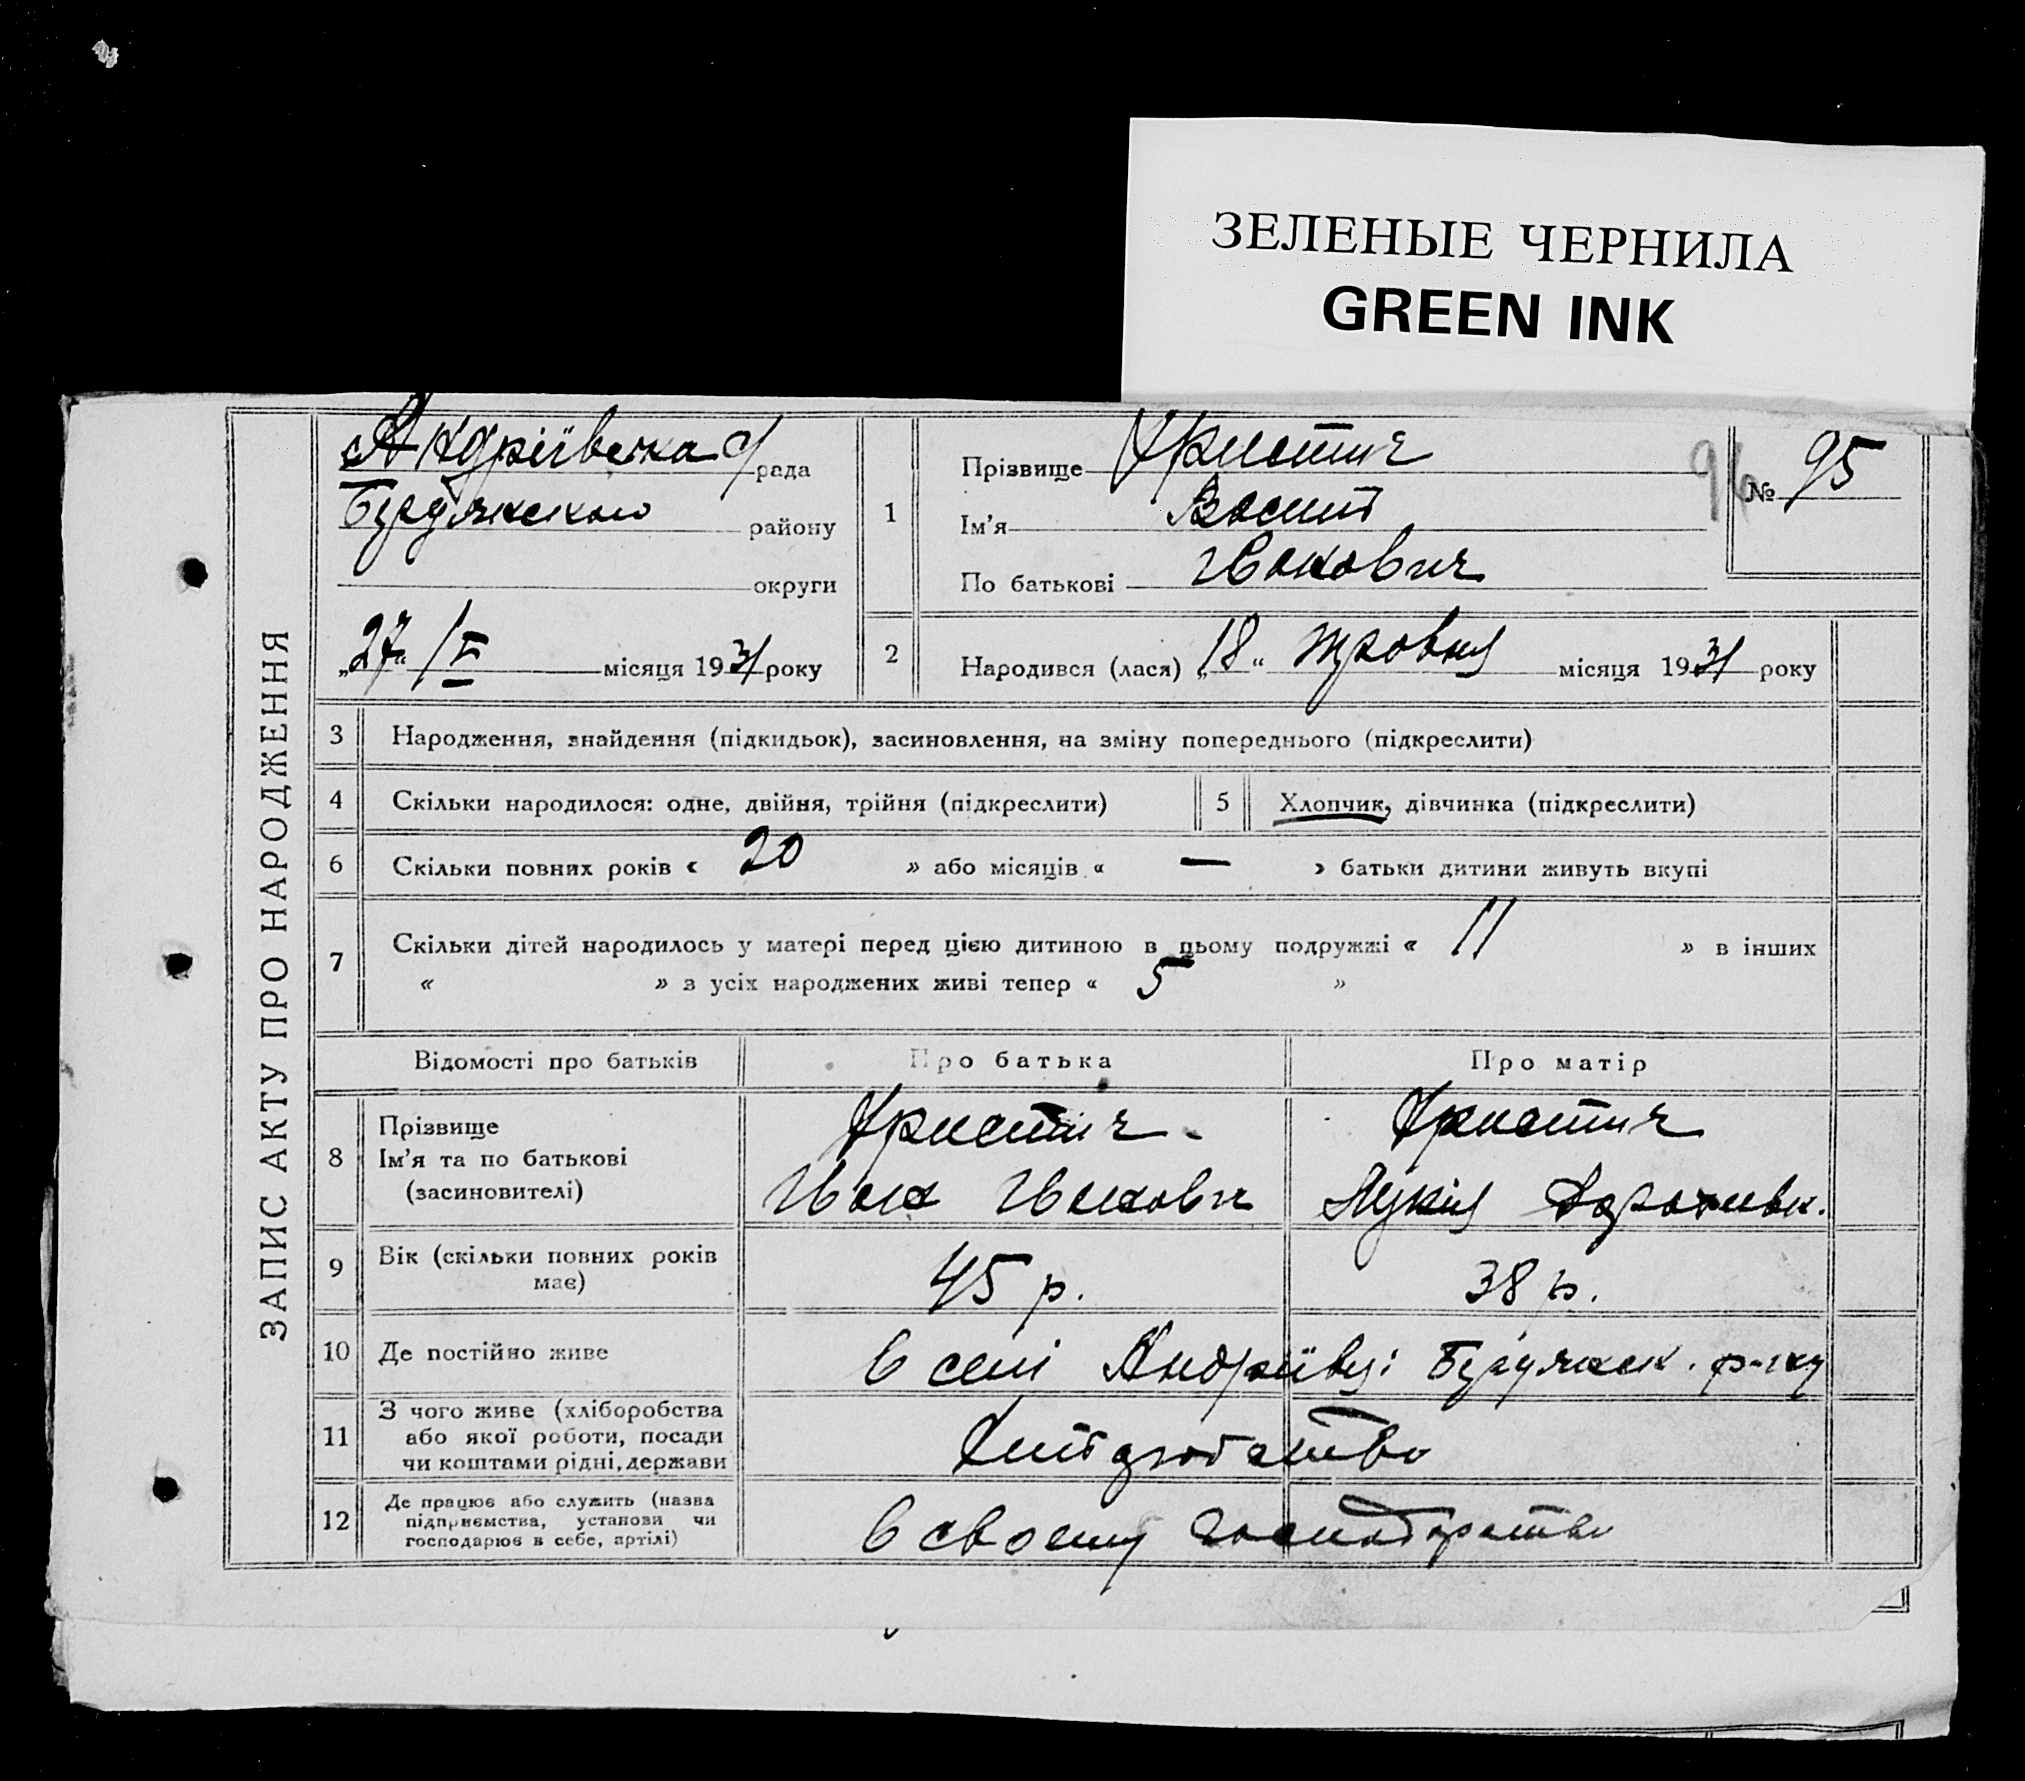 ЗЕЛЕНЫЕ ЧЕРНИЛА
GREEN INK
ЗАПИС АКТУ ПРО НАРОДЖЕННЯ
Андріївська с/рада
району
округи
„27“ /V місяця 1931 року
96 № 95
1 Прізвище Христич
Ім’я Василь
По батькові Іванович
2 Народився (лася) „18“ травня місяця 1931 року
3 Народження, знайдення (підкидьок), засиновлення, на зміну попереднього (підкреслити)
4 Скільки народилося: одне, двійня, трійня (підкреслити)
5 Хлопчик, дівчинка (підкреслити)
6 Скільки повних років « 20 » або місяців « — » батьки дитини живуть вкупі
7 Скільки дітей народилось у матері перед цією дитиною в цьому подружжі « 11 » в інших
« » з усіх народжених живі тепер « 5 »
Відомості про батьків Про батька Про матір
8 Прізвище
Ім’я та по батькові
(засиновителі)
Христич
Іван Іванович
Христич
Лукія
9 Вік (скільки повних років
має)
45 р. 38 р.
10 Де постійно живе
в селі Андріївці р-ну
11 З чого живе (хліборобства
або якої роботи, посади
чи коштами рідні, держави
12 Де працює або служить (назва
підприємства, установи чи
господарює в себе, артілі)
в своєму господарстві